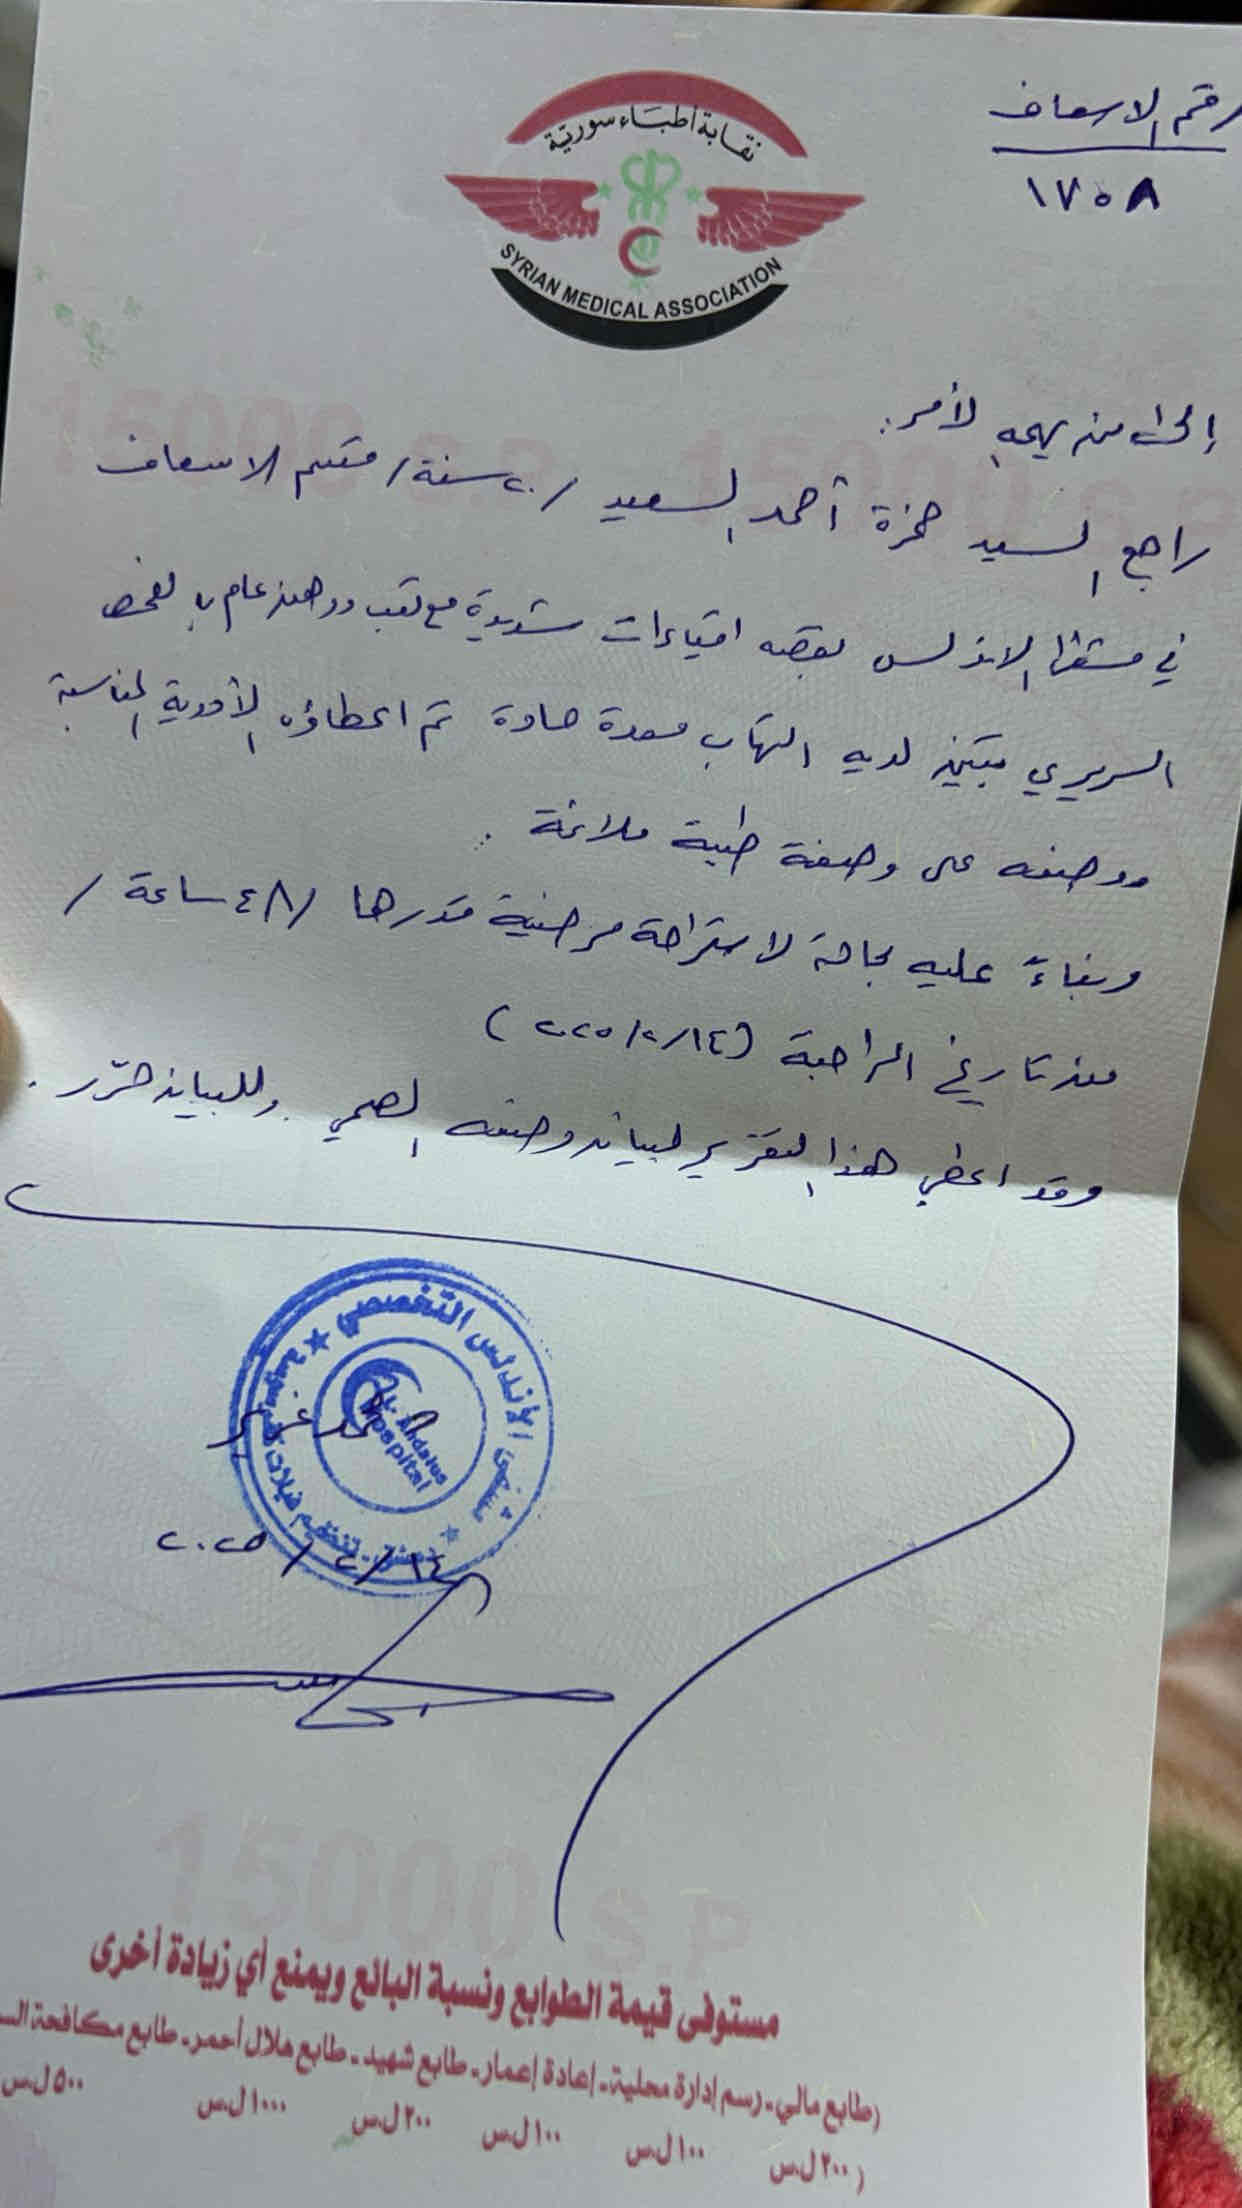 رقم الاسعاف
١٧٥٨
نقابة أطباء سورية
SYRIAN MEDICAL ASSOCIATION
15000 S.P 15000 S.P
إلى من يهمه الأمر:
راجع السيد حمزة أحمد السعيد /٢٠ سنة/ قسم الاسعاف
في مشفى الاندلس بقصة اقياءات شديدة مع تعب ووهن عام بالفحص
السريري تبين لديه التهاب معدة حادة تم اعطاؤه الأدوية المناسبة
ووصفه على وصفة طبية ملائمة.
وبناءً عليه بحاجة لاستراحة مرضية قدرها /٤٨ ساعة/
منذ تاريخ المراجعة (٢٠٢٥/٢/١٤)
وقد اعطي هذا التقرير لبيان وضعه الصحي. وللبيان حرّر.
مشفى الأندلس التخصصي
Al-Andalus
Hospital
دمشق - تنظيم فيلات
٢٠٢٥/٢/١٤
15000 S.P
مستوفى قيمة الطوابع ونسبة البائع ويمنع أي زيادة أخرى
(طابع مالي - رسم إدارة محلية - إعادة إعمار - طابع شهيد - طابع هلال أحمر - طابع مكافحة
(٢٠٠ ل.س ١٠٠ ل.س ١٠٠ ل.س ٢٠٠ ل.س ١٠٠٠ ل.س ٥٠٠ ل.س